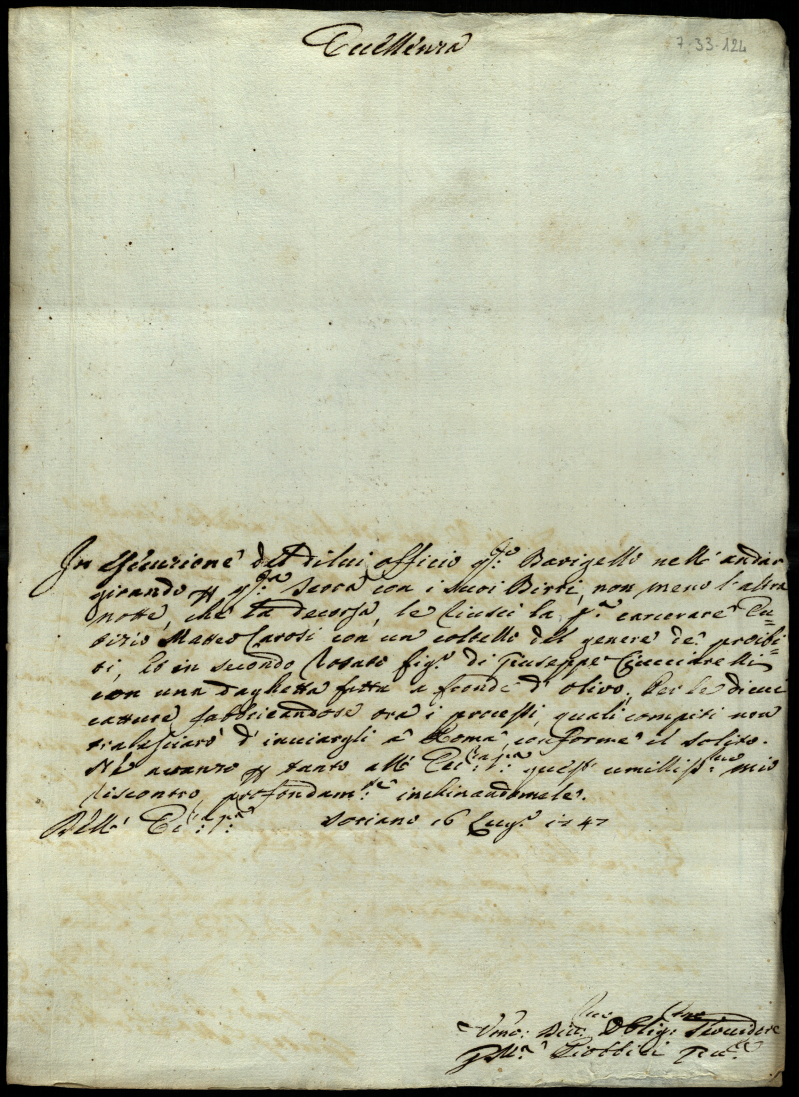 Eccellenza
7-33-124
In essecuzione del di lui officio qsto. Barigello nell' andar
girando p qsta. Terra con i suoi Birri, non meno l'altra
notte, che la decorsa, le riuscì la pa. carcerare Tu=
Matteo Carosi con un coltello del genere de' proibi=
ti, et in secondo Rosato figo. di Giuseppe
con una daghetta fatta a fronde d' olivo. Per le di cui
catture, fabbricandosi ora i processi, quali compiti non
tralasciarò d' inviargli a Roma, conforme il solito.
Ne avanzo p tanto all' Ecc. Va. quest' umilissmo. mio
riscontro, profondamte. inchinandomele.
Dell' Ecc. Va. Soriano 16 Lugo. 1747
Umo: Devo: Obligo: Servidore